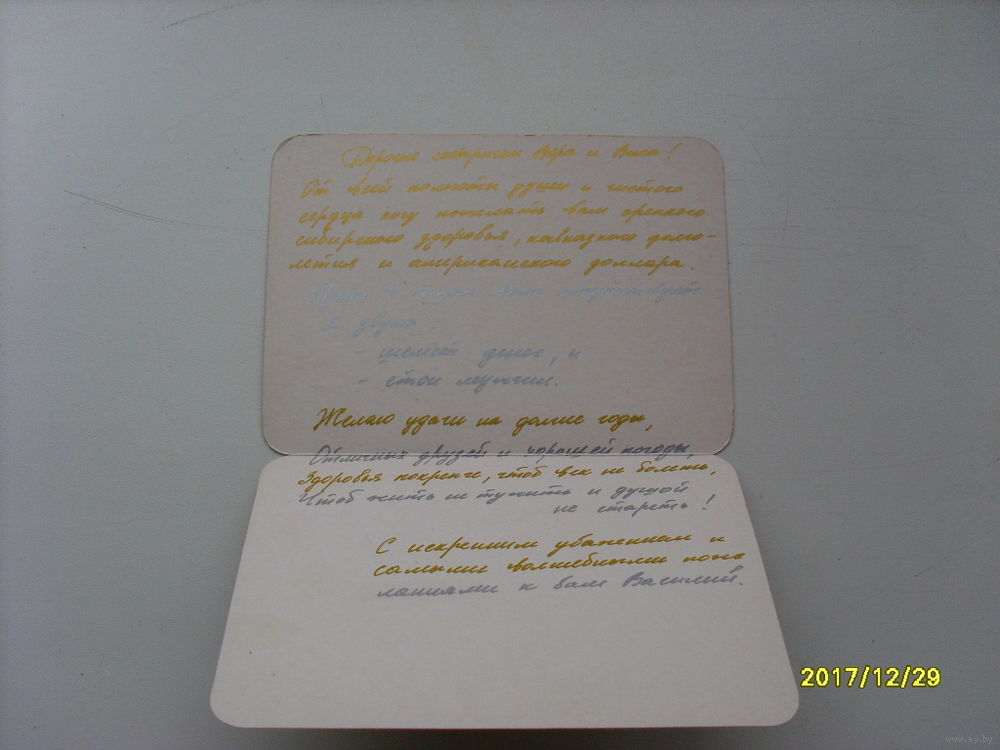 Дорогие сестрички Вера и Вика!
От всей полноты души и чистого
сердца хочу пожелать вам крепкого
сибирского здоровья, кавказкого долго-
летия и американского доллара.
Пусть в жизни вам сопутствуют
два звука:
- шелест денег, и
- стон мужчин.
Желаю удачи на долгие годы,
Отличных друзей и хорошей погоды,
Здоровья покрепче, чтоб век не болеть,
Чтоб жить не тужить и душой
не стареть!
С искренним уважением и
самыми волшебными поже
ланиями к вам Василий.
2017/12/29
www.ay.by